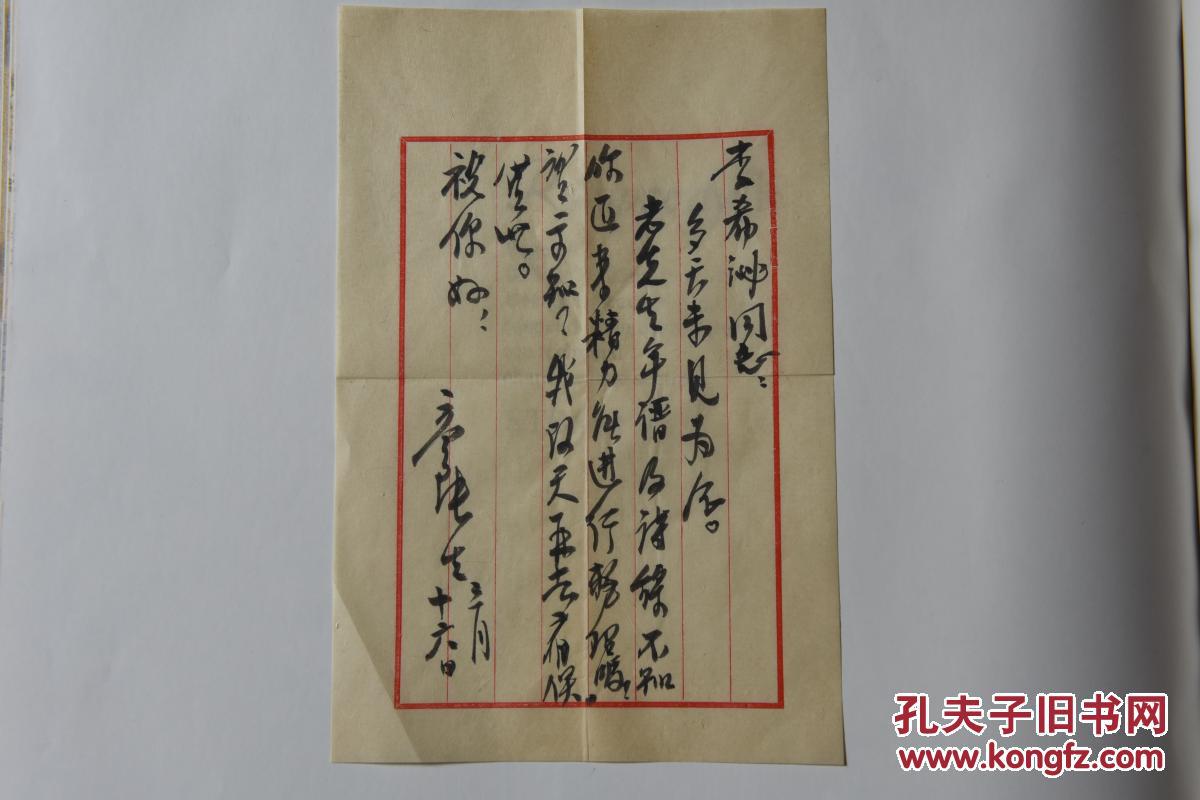 李希泌同志：
多天未见为念。
老先生年谱及诗稿不知
你近来精力能进行整理吗？
望示知，我改天再去看候。
此。
祝你好！
章
三月
十六日
孔夫子旧书网
www.kongfz.com